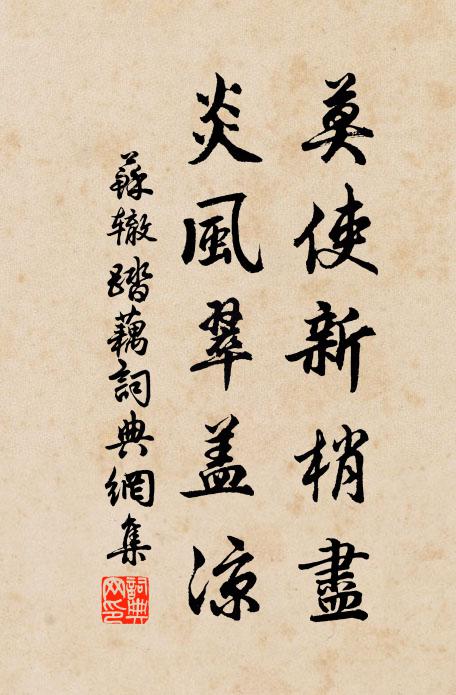 莫使新梢盡
炎風翠盖涼
蘇辙踏藕詞典網集
詞典網印